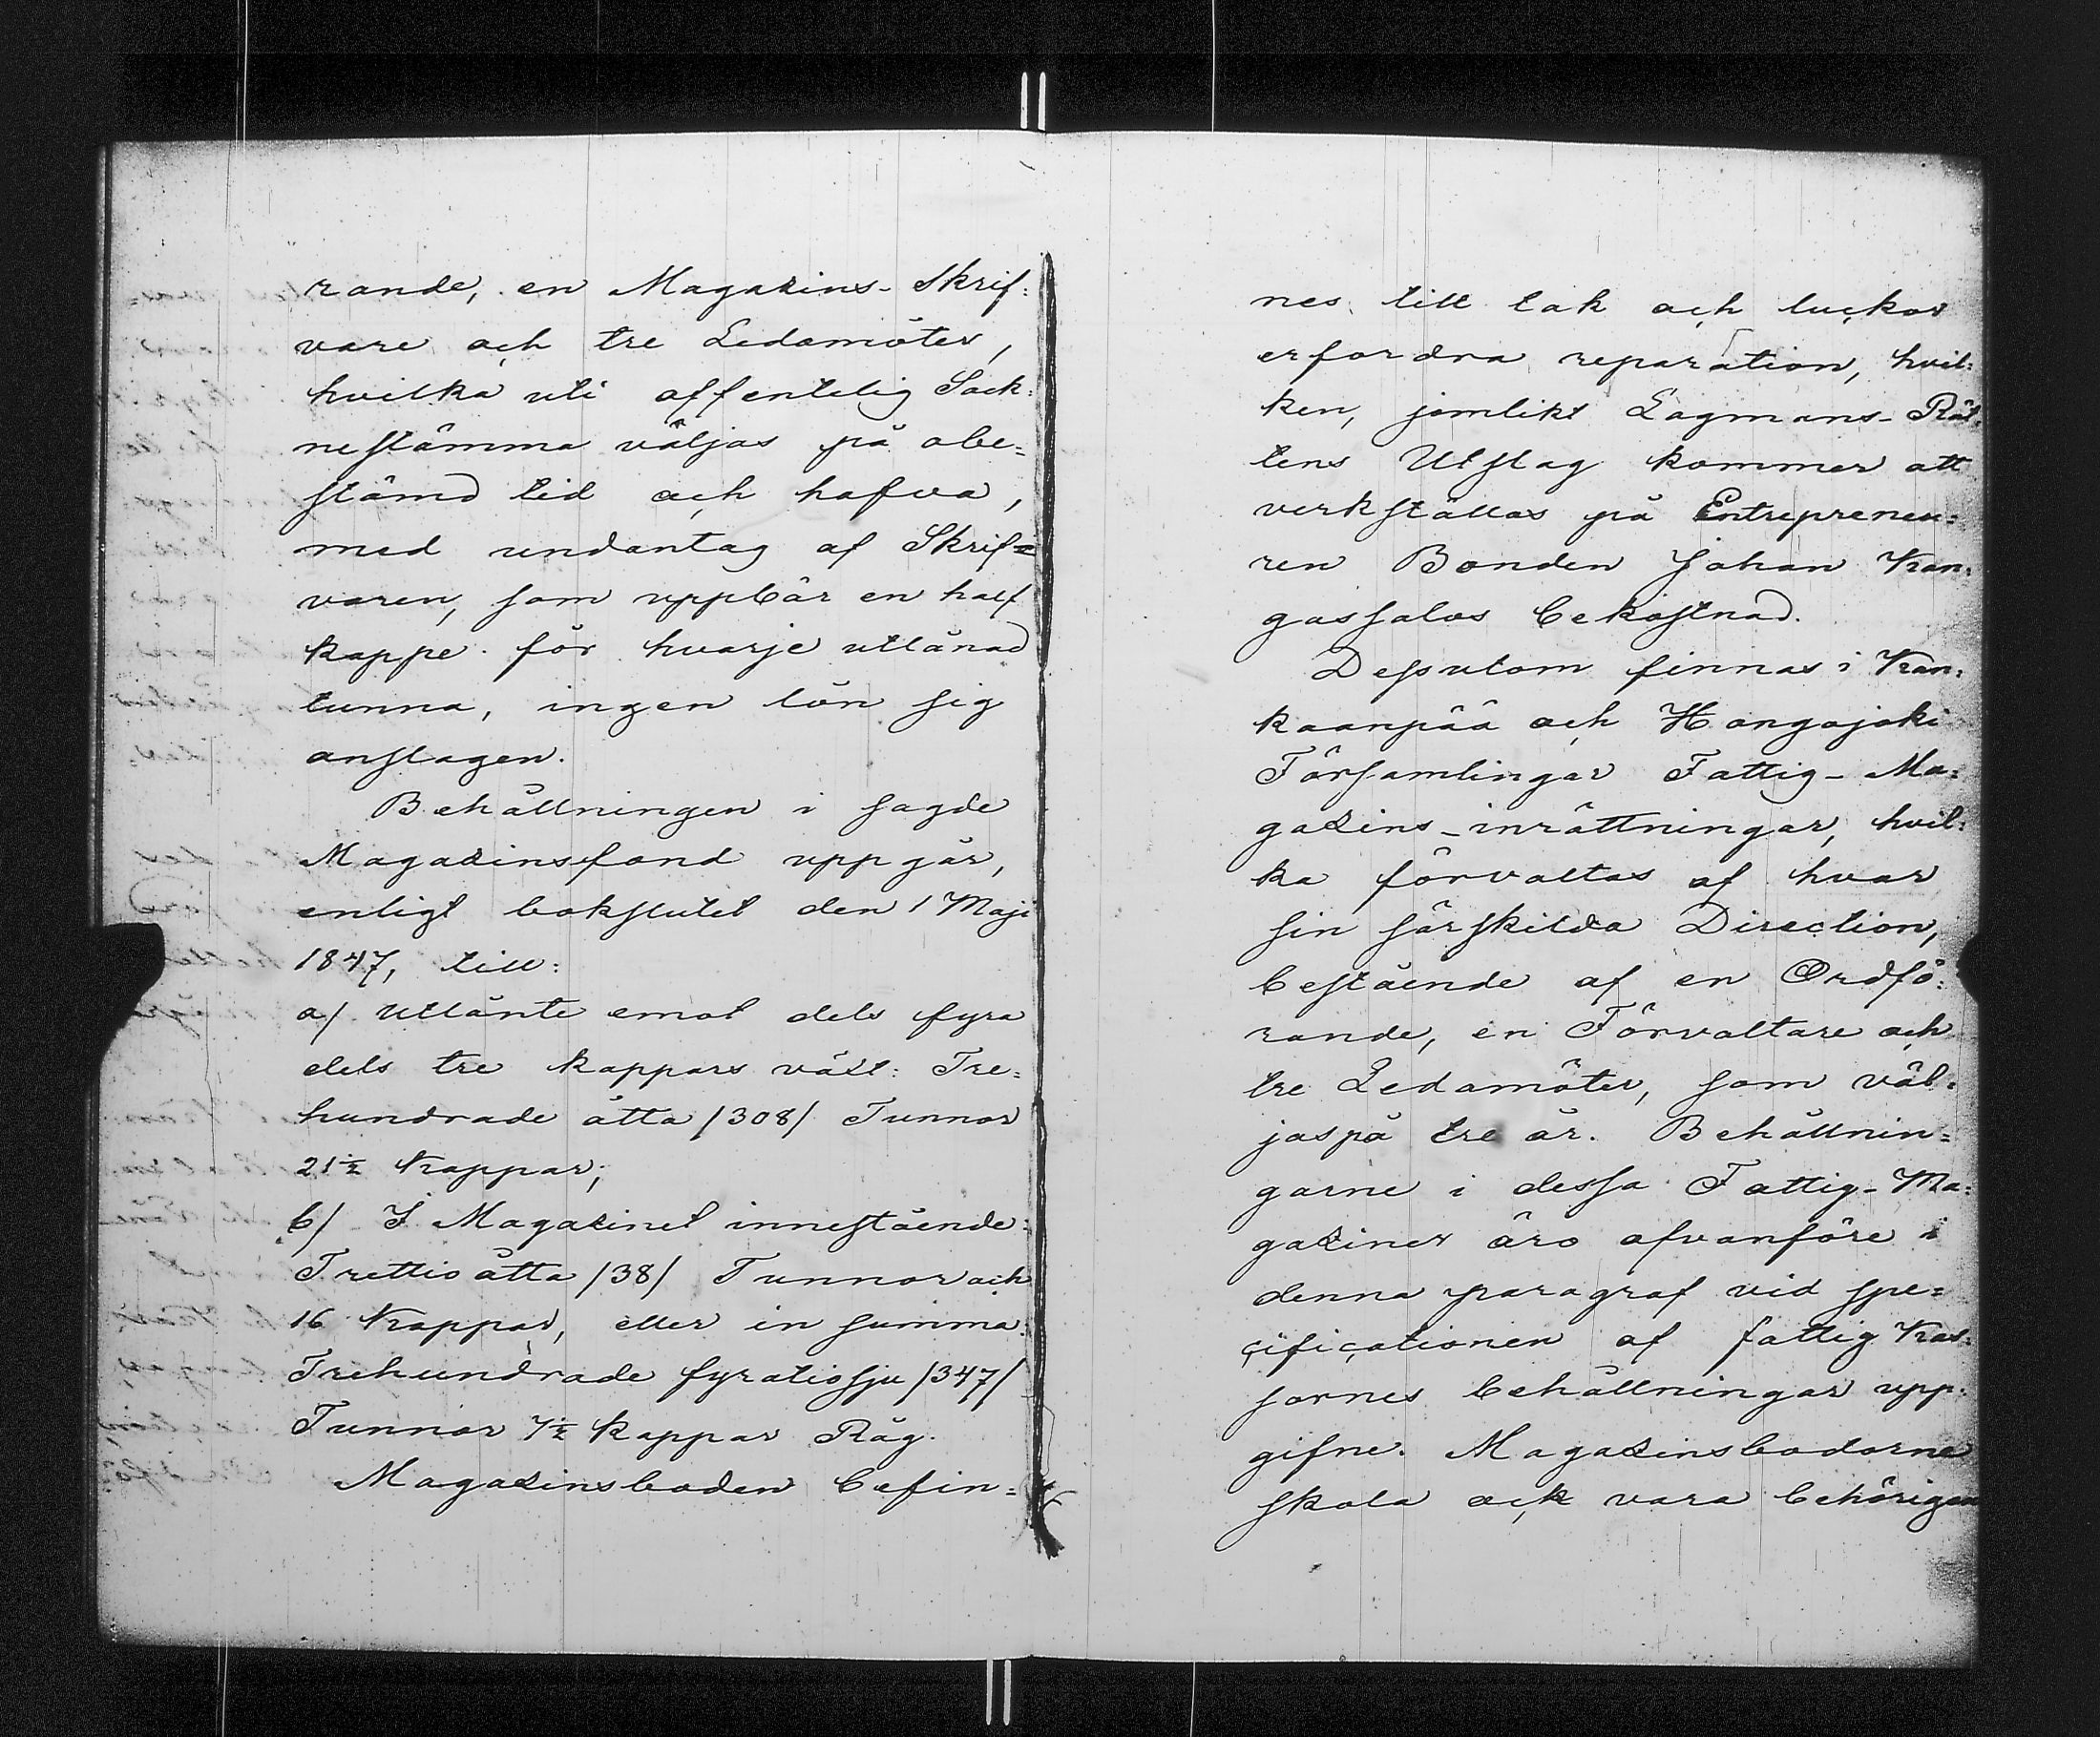 rande, en Magazins-Skrif=
vare och tre Ledamöter,
hvilka uti offentelig Sock=
nestämma väljas på obe=
stämd tid och hafva,
med undantag af Skrif=
varen, som uppbär en half
kappe för hvarje utlånad
tunna, ingen lön sig
anslagen.
Behållningen i sagde
Magazinsfond uppgår,
enligt bokslutet den 1 Maji
1847, till:
a/ Utlånte emot dels fyra
dels tre kappars växt: Tre=
hundrade åtta /308/ Tunnor
21½ Kappar;
b/ I Magazinet innestående:
Trettioåtta /38/ Tunnor och
16 Kappar, eller in summa:
Trehundrade fyratiosju /347/
Tunnor 7½ kappar Råg.
Magazinsboden befin=
nes till tak och luckor
erfordra reparation, hvil=
ken, jemlikt Lagmans-Rät=
tens Utslag kommer att
verkställas på Entrepreneu=
ren Bonden Johan Kan=
gassalos bekostnad.
Dessutom finnas i Kan=
kaanpää och Hongojoki
Församlingar Fattig-Ma=
gazins-inrättningar, hvil=
ka förvaltas af hvar
sin särskilda Direction,
bestående af en Ordfö=
rande, en Förvaltare och
tre Ledamöter, som väl=
jas på tre år. Behållnin=
garne i dessa Fattig-Ma=
gaziner äro ofvanföre i
denna paragraf vid spe=
cificationen af fattig Kas=
sornes behållningar upp=
gifne. Magazinsbodarne
skola ock vara behörigen